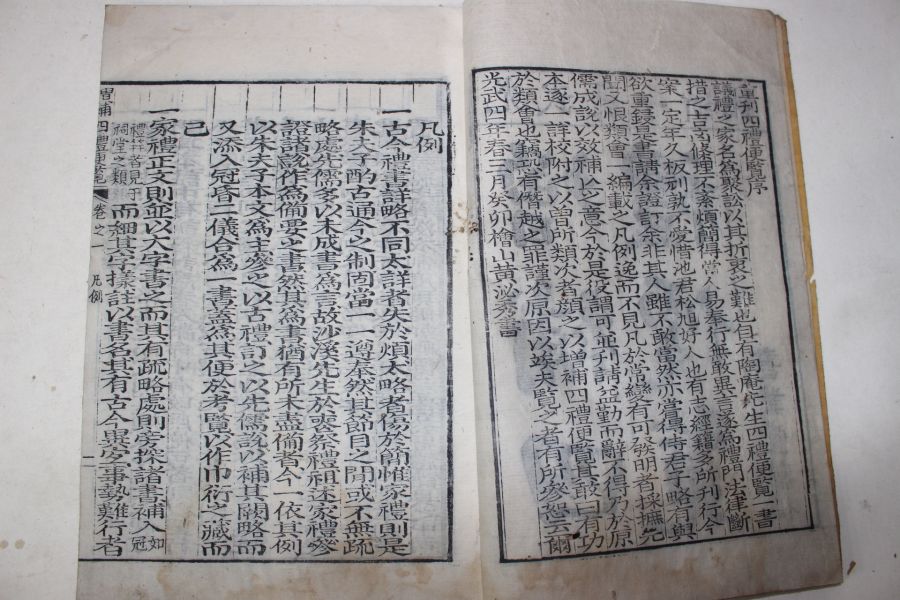 重刊四禮便覽序
議禮之家名爲聚訟以其折衷之難也自有陶庵先生四禮便覽一書
措之吉凶條理不紊煩簡得當人易奉行無敢異言遂爲禮門法律斷
案一定年久板刓孰不愛惜池君松旭好人也有志經籍多所刊行今
欲重鋟是書請余證訂余非其人雖不敢當然亦嘗得侍君子略有與
聞又恨類會編載之凡例逸而不見凡於常變有可發明者採摭先
儒成說以效補上之意今於是役謂可並刊請益勤而辭不得乃於原
本逐一詳校附之以曾所類次者顏之以增補四禮便覽其敢曰有功
於類會也竊恐有僭越之罪謹次原因以竢夫覽之者有所參恕云爾
光武四年春三月癸卯檜山黃泌秀書
凡例
一古今禮書詳略不同太詳者失於煩太略者傷於簡惟家禮則是
朱夫子酌古通今之制固當一一遵奉然其節目之間或不無疏
略處先儒多以未成書爲言故沙溪先生於喪祭禮祖述家禮參
證諸說作爲備要之書然其爲書猶有所未盡備者今一依其例
以朱夫子本文爲主參之以古禮訂之以先儒說以補其闕略而
又添入冠昏二儀合爲一書蓋爲其便於考覽以作巾衍之藏而
已
一家禮正文則並以大字書之而其有疏略處則旁採諸書補入如冠
禮筓者見于祠堂之類而細其字樣註以書名其有古今異宜事勢難行者
增補四禮便覽 卷之一 凡例 一